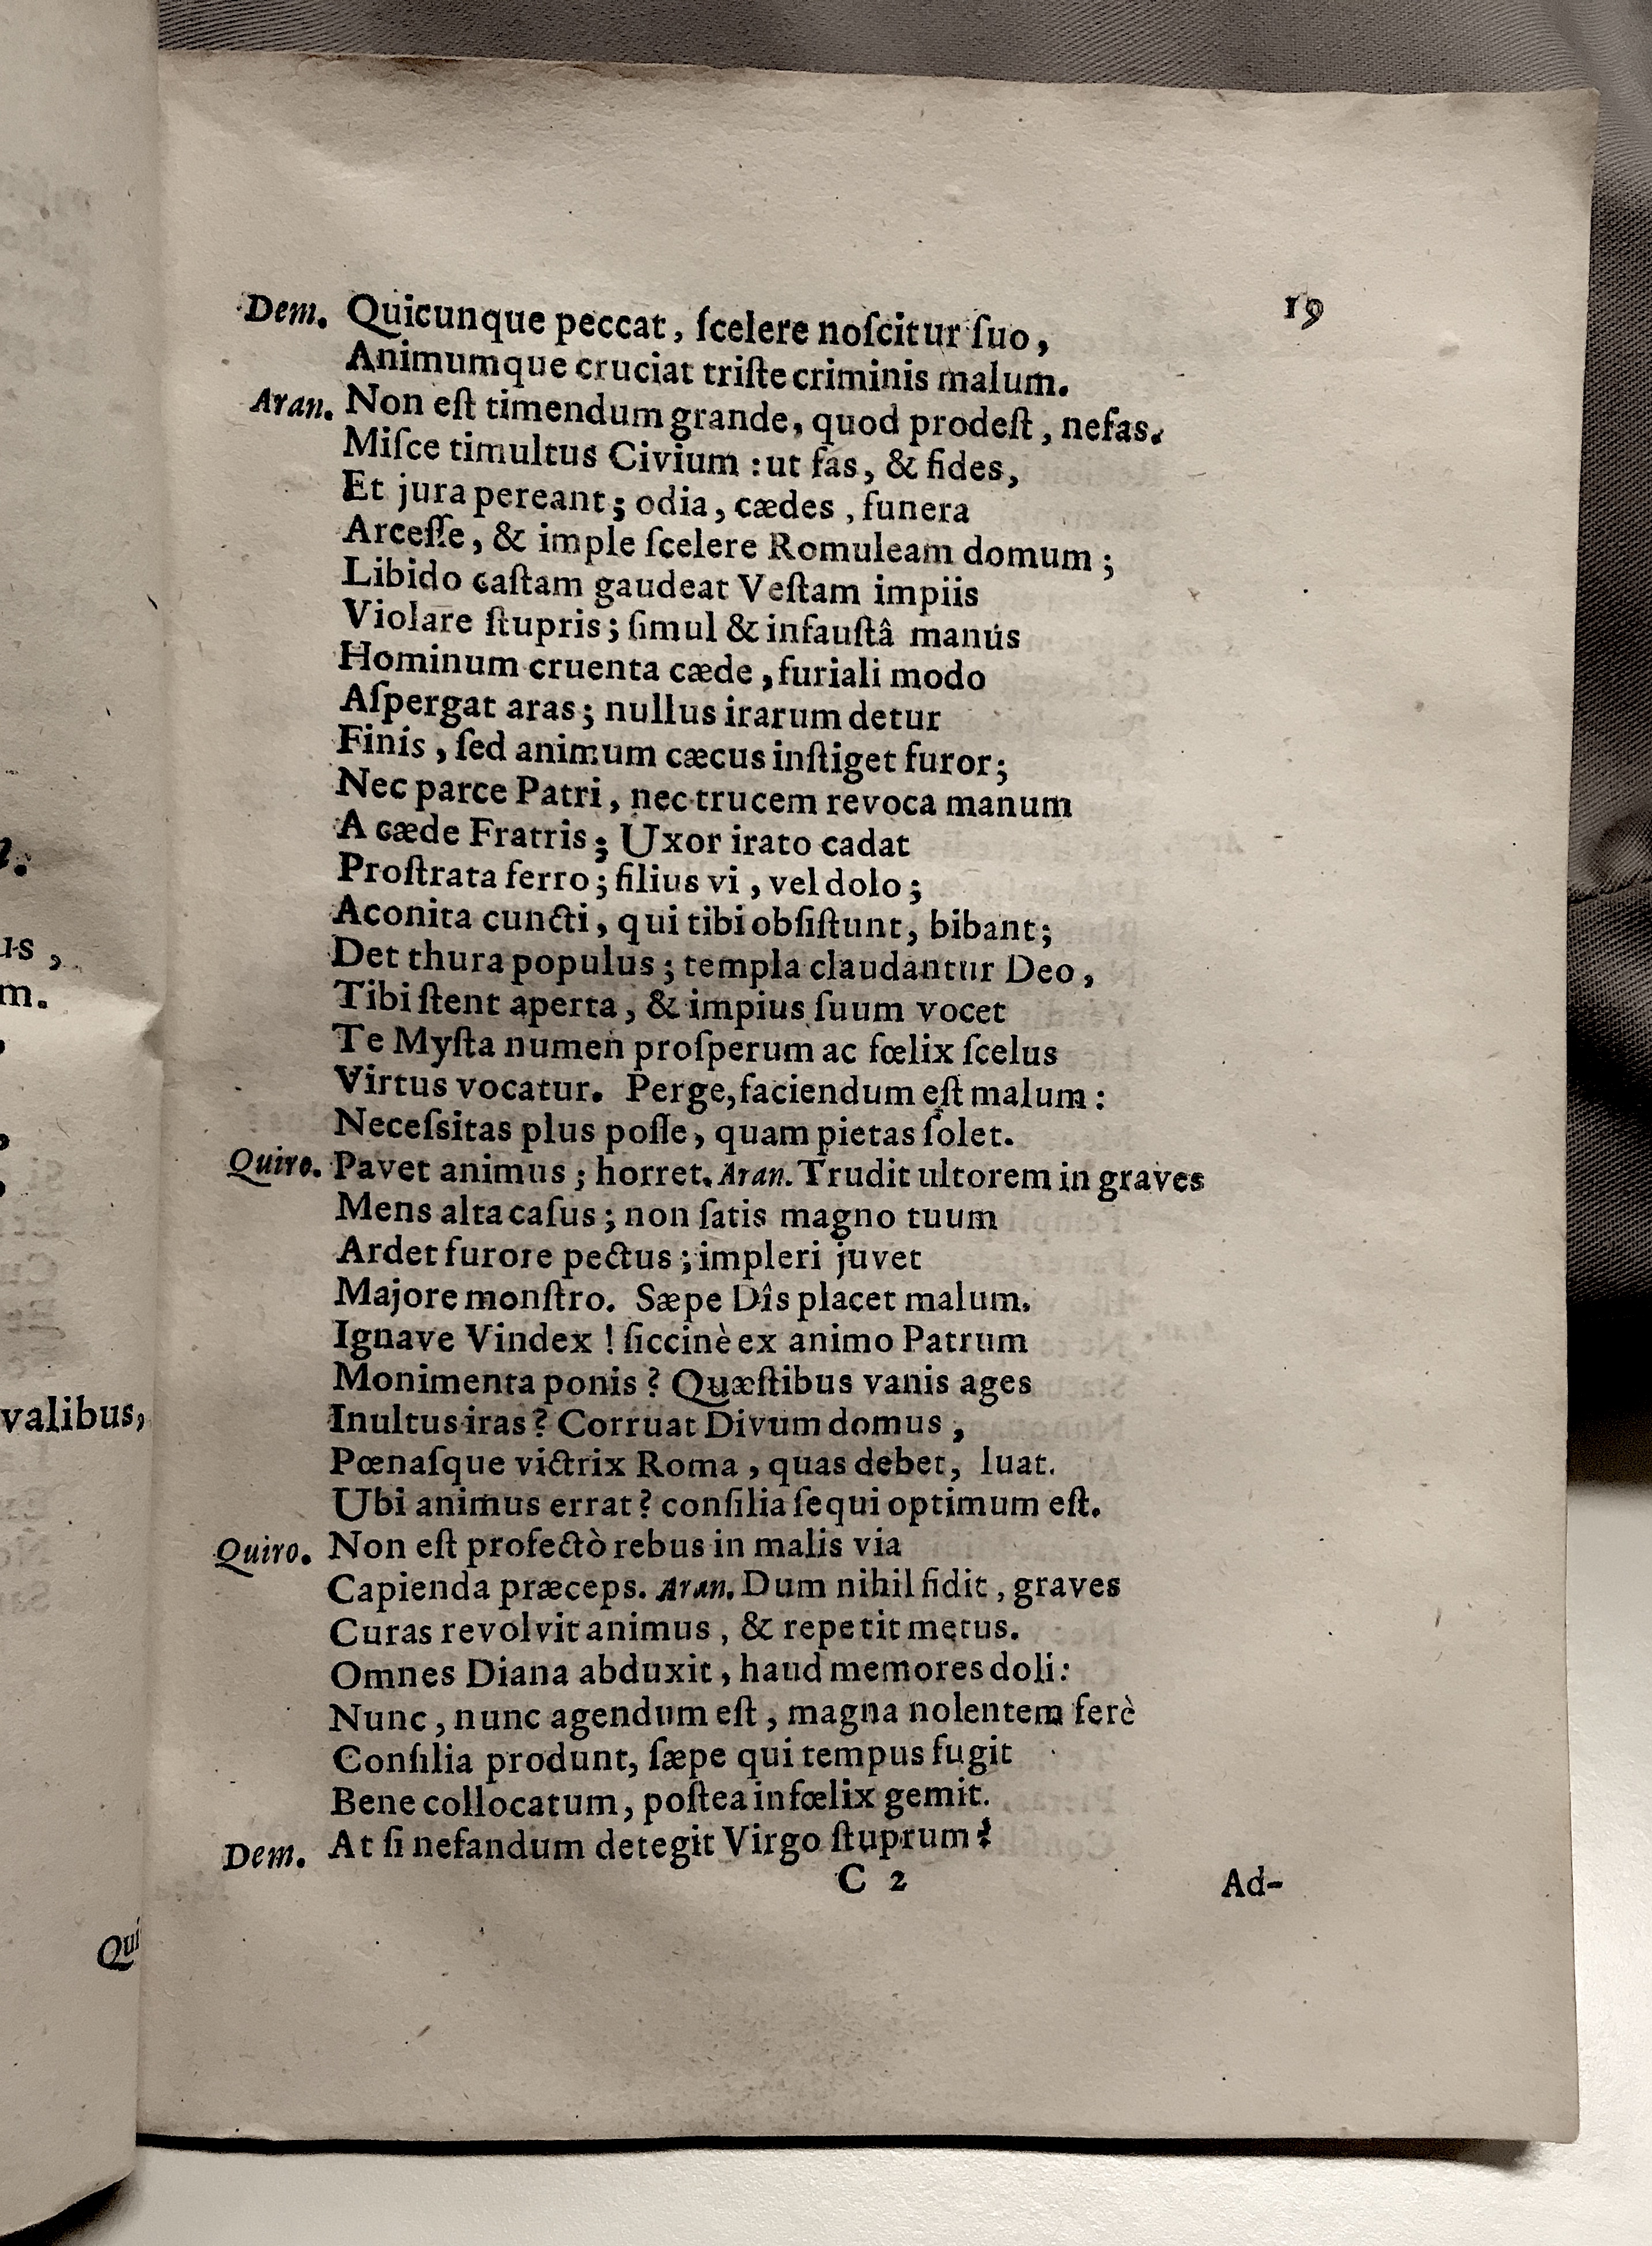 us,
m.
valibus,
Qui
19
Dem. Quicunque peccat, ſcelere noſcitur ſuo,
Animumque cruciat triſte criminis malum.
Aran. Non eſt timendum grande, quod prodeſt, nefas.
Miſce timultus Civium : ut fas, & fides,
Et jura pereant; odia, cædes, funera
Arceſſe, & imple ſcelere Romuleam domum;
Libido caſtam gaudeat Veſtam impiis
Violare ſtupris; ſimul & infauſtâ manús
Hominum cruenta cæde, furiali modo
Aſpergat aras; nullus irarum detur
Finis, ſed animum cæcus inſtiget furor;
Nec parce Patri, nec trucem revoca manum
A cæde Fratris; Uxor irato cadat
Proſtrata ferro; filius vi, vel dolo;
Aconita cuncti, qui tibi obſiſtunt, bibant;
Det thura populus; templa claudantur Deo,
Tibi ſtent aperta, & impius ſuum vocet
Te Myſta numen proſperum ac fœlix ſcelus
Virtus vocatur. Perge, faciendum eſt malum:
Neceſsitas plus poſſe, quam pietas ſolet.
Quiro. Pavet animus; horret. Aran. Trudit ultorem in graves
Mens alta caſus; non ſatis magno tuum
Ardet furore pectus; impleri juvet
Majore monſtro. Sæpe Dîs placet malum.
Ignave Vindex! ſiccinè ex animo Patrum
Monimenta ponis? Quæſtibus vanis ages
Inultus iras? Corruat Divum domus,
Pœnaſque victrix Roma, quas debet, luat.
Ubi animus errat? conſilia ſequi optimum eſt.
Quiro. Non eſt profectò rebus in malis via
Capienda præceps. Aran. Dum nihil fidit, graves
Curas revolvit animus, & repetit metus.
Omnes Diana abduxit, haud memores doli:
Nunc, nunc agendum eſt, magna nolentem ferè
Conſilia produnt, ſæpe qui tempus fugit
Bene collocatum, poſtea infœlix gemit.
Dem. At ſi nefandum detegit Virgo ſtuprum?
C 2
Ad-